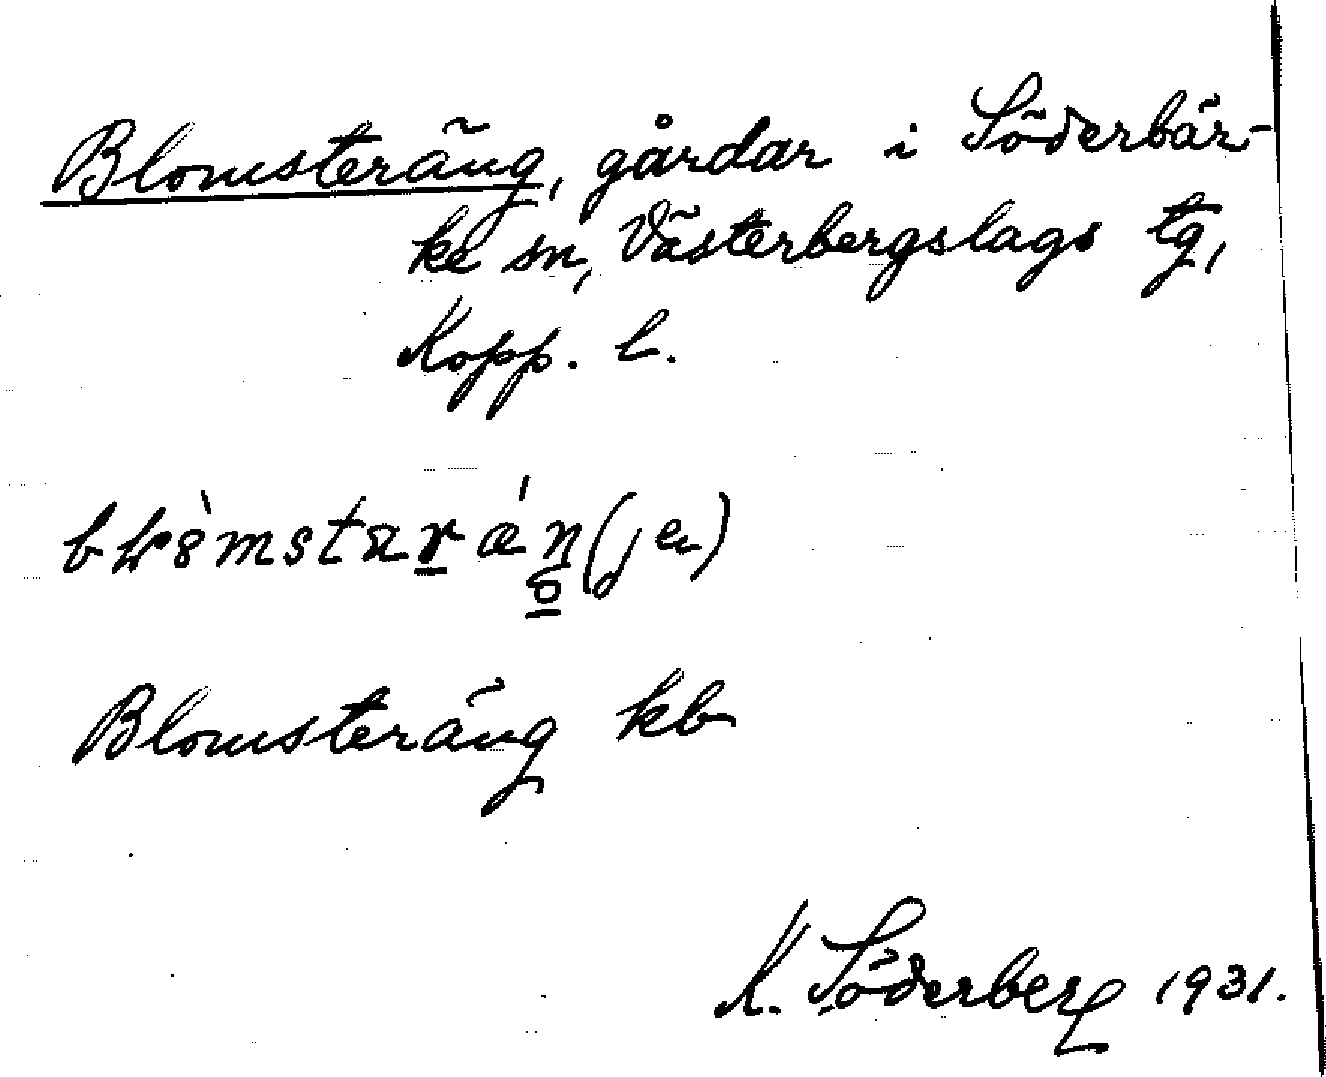 Blomsteräng, gårdar i Söderbär-
ke sn, Västerbergslags tg,
Kopp. l.
Blomsteräng kb
K. Söderberg 1931.